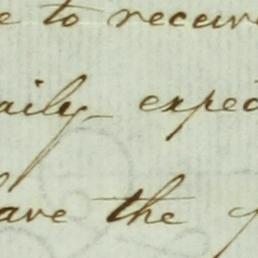 e to receiv
aily expec
ave the